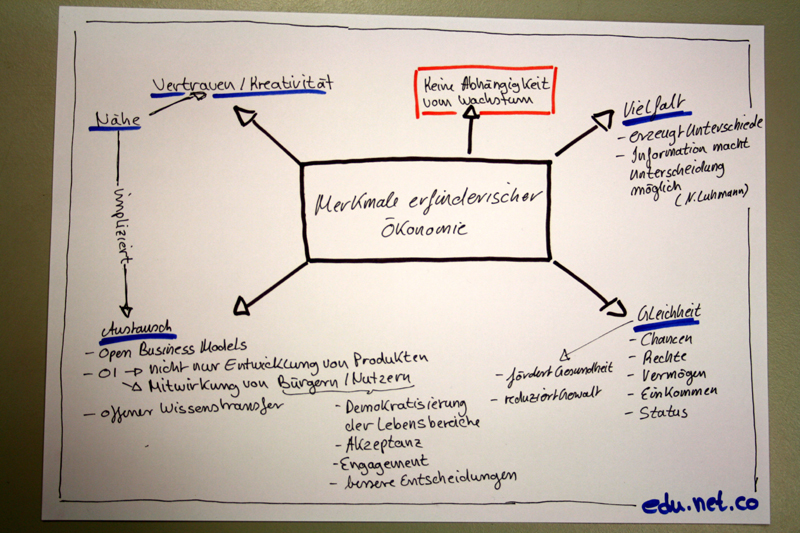 Vertrauen/Kreativität
Nähe
impliziert
Keine Abhängigkeit
vom Wachstum
Vielfalt
- erzeugt Unterschiede
- Information macht
Unterscheidung
möglich
(N. Luhmann)
Merkmale erfinderischer
Ökonomie
Austausch
- Open Business Models
- OI → nicht nur Entwicklung von Produkten
↘ Mitwirkung von Bürgern/Nutzern
- offener Wissenstransfer
- Demokratisierung
der Lebensbereiche
- Akzeptanz
- Engagement
- bessere Entscheidungen
Gleichheit
- Chancen
- Rechte
- Vermögen
- Einkommen
- Status
- fördert Gesundheit
- reduziert Gewalt
edu.net.co